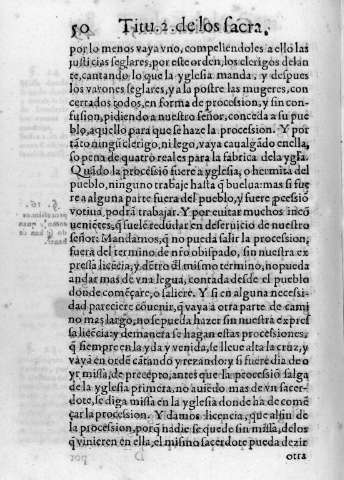 50 Titu. 2. de los sacra.
por lo menos vaya vno, compeliendoles a ello las
justicias seglares, por este orden, los clerigos delan
te, cantando lo que la yglesia manda, y despues
los varones seglares, y a la postre las mugeres, con
certados todos, en forma de procession, y sin con-
fusion, pidiendo a nuestro señor, conceda a su pue
blo, aquello para que se haze la procession. Y por
tãto ningũ clerigo, ni lego, vaya caualgãdo en ella,
so pena de quatro reales para la fabrica de la ygľa.
Quãdo la processiõ fuere a yglesia, o hermita del
pueblo, ninguno trabaje hasta q̃ buelua: mas si fue
re a alguna parte fuera del pueblo, y fuere p̃cessiõ
votiua, podrà trabajar. Y por euitar muchos incõ
ueniẽtes, q̃ suelẽ redũdar en deseruicio de nuestro
señor: Mandamos, q̃ no pueda salir la procession,
fuera del termino de nr̃o obispado, sin nuestra ex
pressa licẽcia, y dẽtro del mismo termino, no pueda
andar mas de vna legua, contada desde el pueblo
donde comẽçare, o saliere. Y si en alguna necessi-
dad pareciere cõuenir, q̃ vaya a otra parte de cami
no mas largo, no se pueda hazer sin nuestra expres
sa licẽcia y demanera se hagan estas processiones,
q̃ siempre en la yda y venida, se lleue alta la cruz, y
vaya en ordẽ cãtando y rezando: y si fuere dia de o
yr missa, de precepto, antes que la processiõ salga
de la yglesia primera, no auiẽdo mas de vn sacer-
dote, se diga missa en la yglesia donde ha de comẽ
çar la procession. Y damos licencia, que al fin de
la procession, porq̃ nadie se quede sin missa, de los
q̃ vinieren en ella, el mismo sacerdote pueda dezir
otra